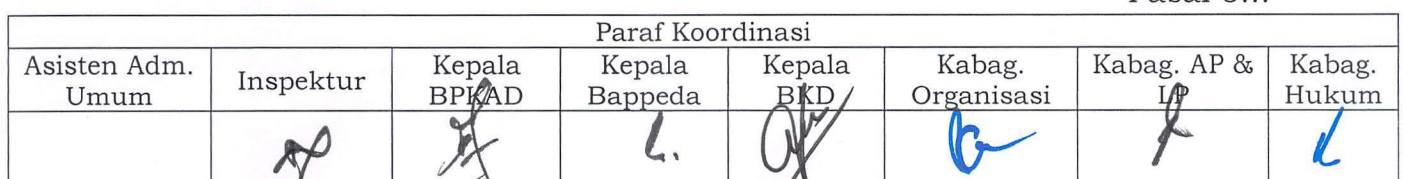 Paraf Koordinasi
Asisten Adm. Umum
Inspektur
Kepala BPKAD
Kepala Bappeda
Kepala BKD
Kabag. Organisasi
Kabag. AP & LP
Kabag. Hukum